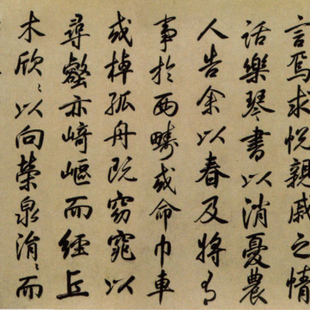 言焉求悅親戚之情
話樂琴書以消憂農
人告余以春及將有
事於西疇或命巾車
或棹孤舟既窈窕以
尋壑亦崎嶇而經丘
木欣〻以向榮泉涓〻而